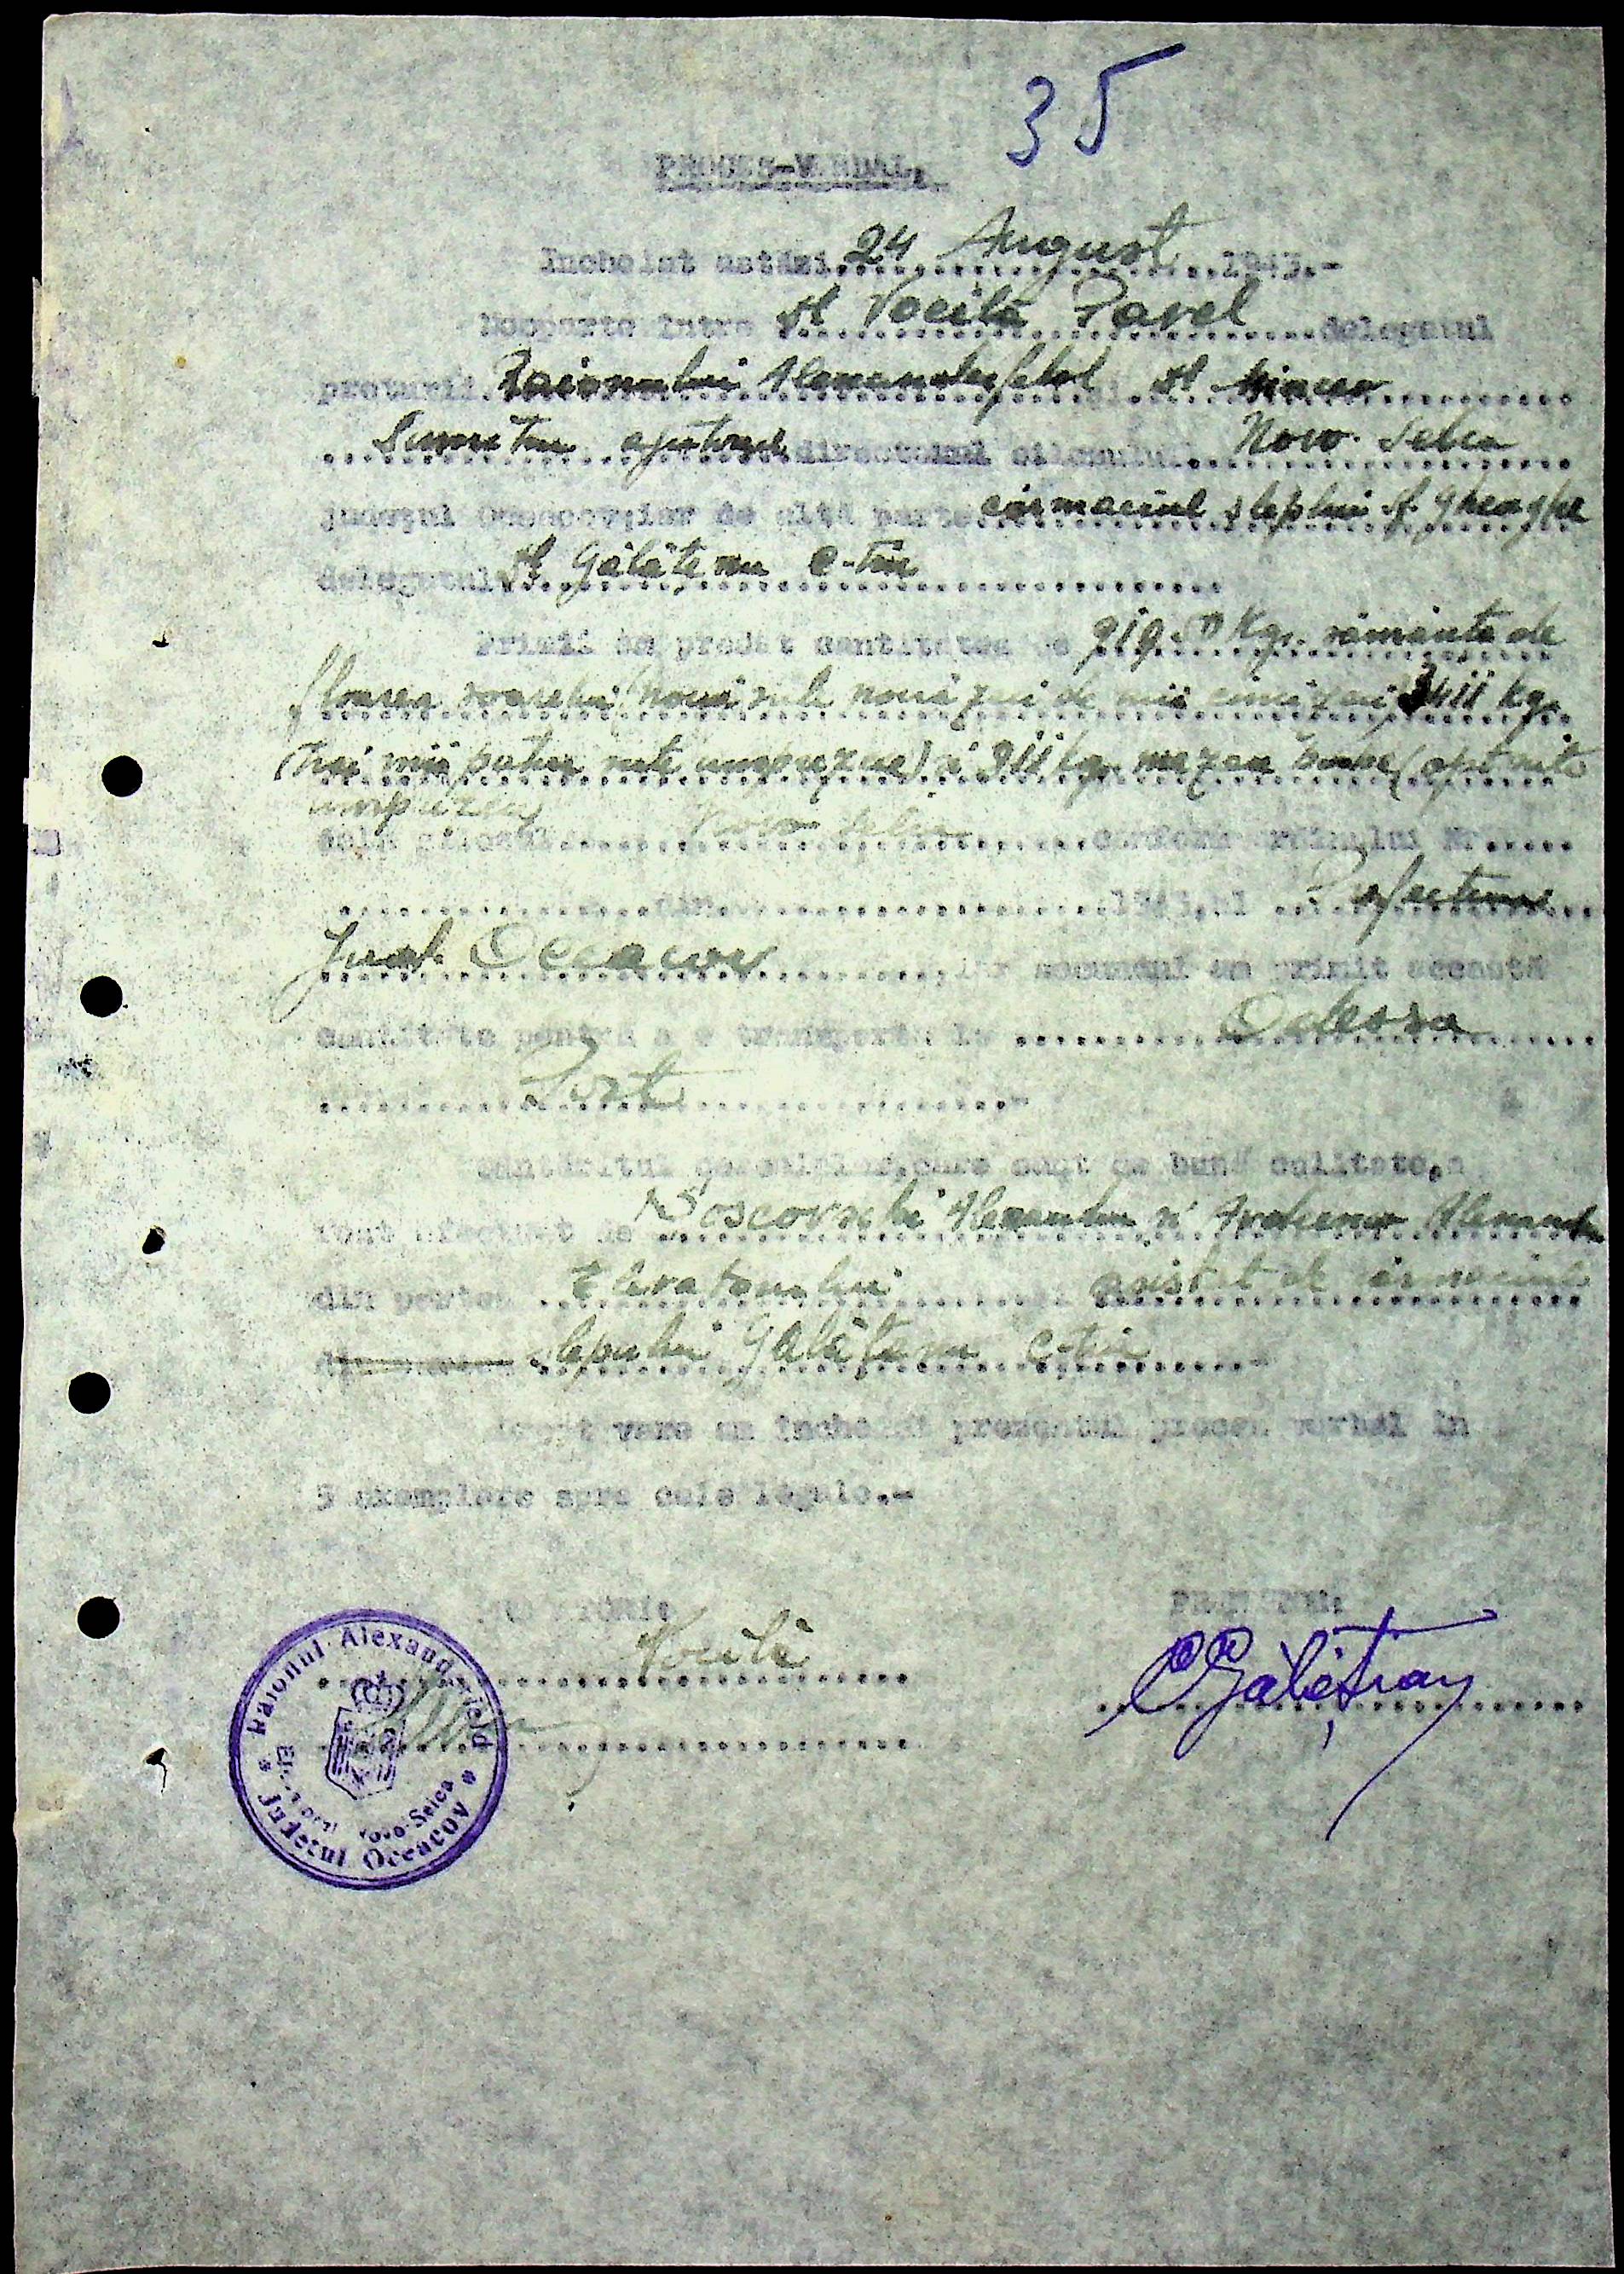 35
PROCES-VERBAL.
Incheiat astăzi 24 August 1943.-
Noi, parte între dl Vocilă Pavel delegatul
preturii Raionului Alexanderfeld și dl
Dumitru ajutorul directorul silozului Novo-Selca
județul Oceacov, iar de altă parte cârmaciul șlepului Sf. Gheorghe
delegatul dl Gălățeanu C-tin
Primii am predat cantitatea de Kgr. sămânță de
floarea soarelui 3411 kg.
(trei mii patru sute unsprezece) și kgr. mazăre boabe (opt sute
unsprezece)
dela silozul Novo Selca conform ordinului Nr.....
din 1943, al Prefecturei
Jud. Oceacov, iar secundul am primit această
cantitate pentru a o transporta la Odessa
Port
Cântăritul cerealelor, care sunt de bună calitate, a
fost efectuat de Alexandru și Alexandru
din partea Elevatorului și asistat de cârmaciul
șlepului Gălățeanu C-tin
Drept care am încheiat prezentul proces verbal în
3 exemplare spre cele legale.-
PREDĂTORI: PRIMITOR:
Vocilă CGălățeanu
Raionul Alexanderfeld
Novo-Selca
Județul Oceacov